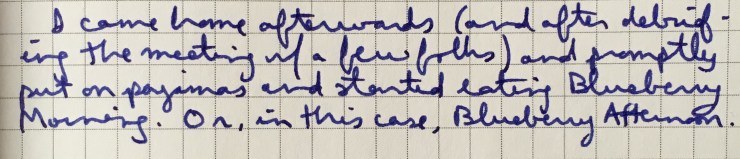 I came home afterwards (and after debrief-
ing the meeting w/ a few folks) and promptly
put on pajamas and started eating Blueberry
Morning. Or, in this case, Blueberry Afternoon.